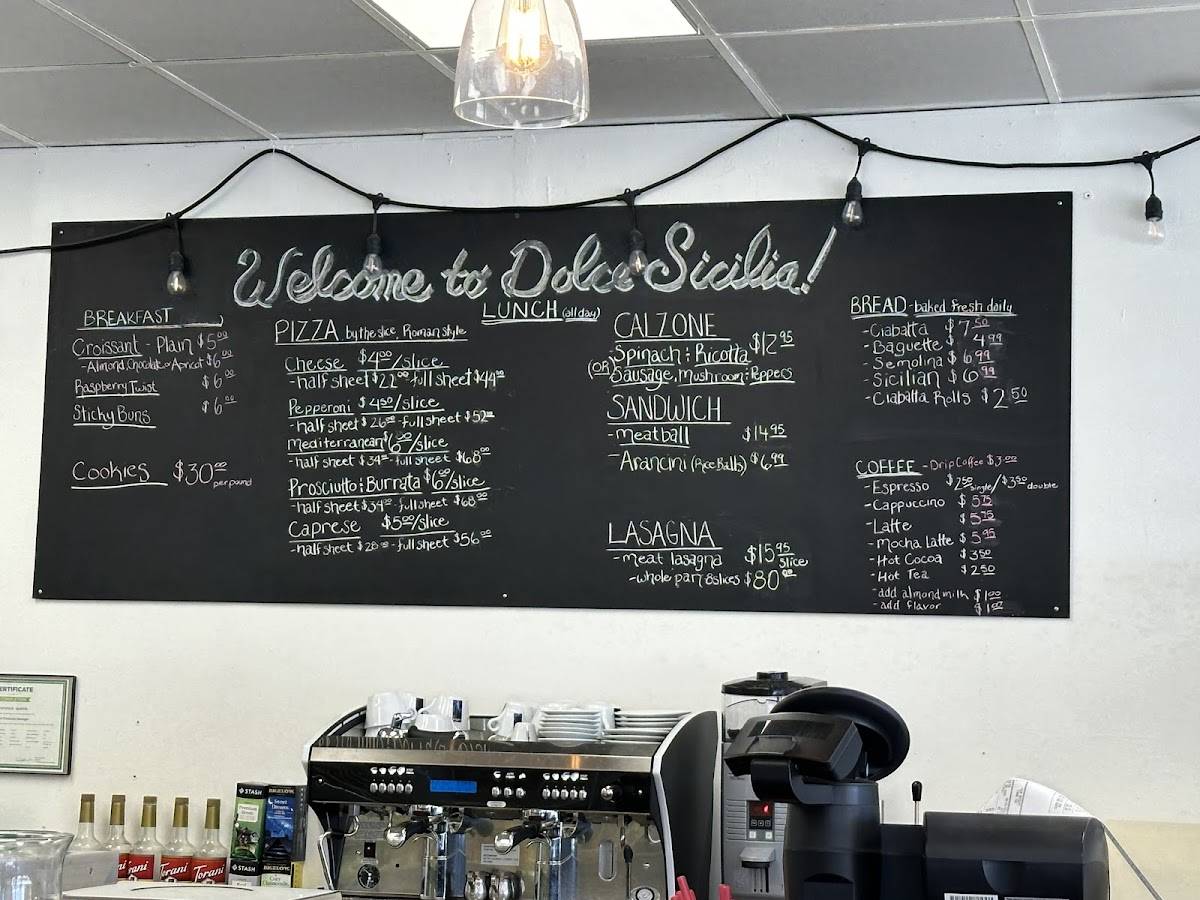 Welcome to Dolce Sicilia!
BREAKFAST
Croissant - Plain $5.00
- Almond, Chocolate or Apricot $6.00
Raspberry Twist $6.00
Sticky Buns $6.00
Cookies $30.00 per pound
LUNCH (all day)
PIZZA by the slice, Roman style
Cheese $4.00/slice
- half sheet $22.00 - full sheet $44.00
Pepperoni $4.50/slice
- half sheet $26.00 - full sheet $52.00
Mediterranean $6.00/slice
- half sheet $34.00 - full sheet $68.00
Prosciutto & Burrata $6.00/slice
- half sheet $34.00 - full sheet $68.00
Caprese $5.00/slice
- half sheet $28.00 - full sheet $56.00
CALZONE
Spinach & Ricotta $12.95
(OR) Sausage, Mushroom & Peppers
SANDWICH
- meatball $14.95
- Arancini (Rice Balls) $6.99
LASAGNA
- meat lasagna $15.95 slice
- whole pan 8 slices $80.00
BREAD - baked fresh daily
- Ciabatta $7.50
- Baguette $4.99
- Semolina $6.99
- Sicilian $6.99
- Ciabatta Rolls $2.50
COFFEE - Drip Coffee $3.00
- Espresso $2.50 single/$3.50 double
- Cappuccino $5.75
- Latte $5.75
- Mocha Latte $5.95
- Hot Cocoa $3.50
- Hot Tea $2.50
- add almond milk $1.00
- add flavor $1.00
CERTIFICATE
STASH
BIGELOW
Sweet Dreams
STASH
BIGELOW
Torani
Torani
Torani